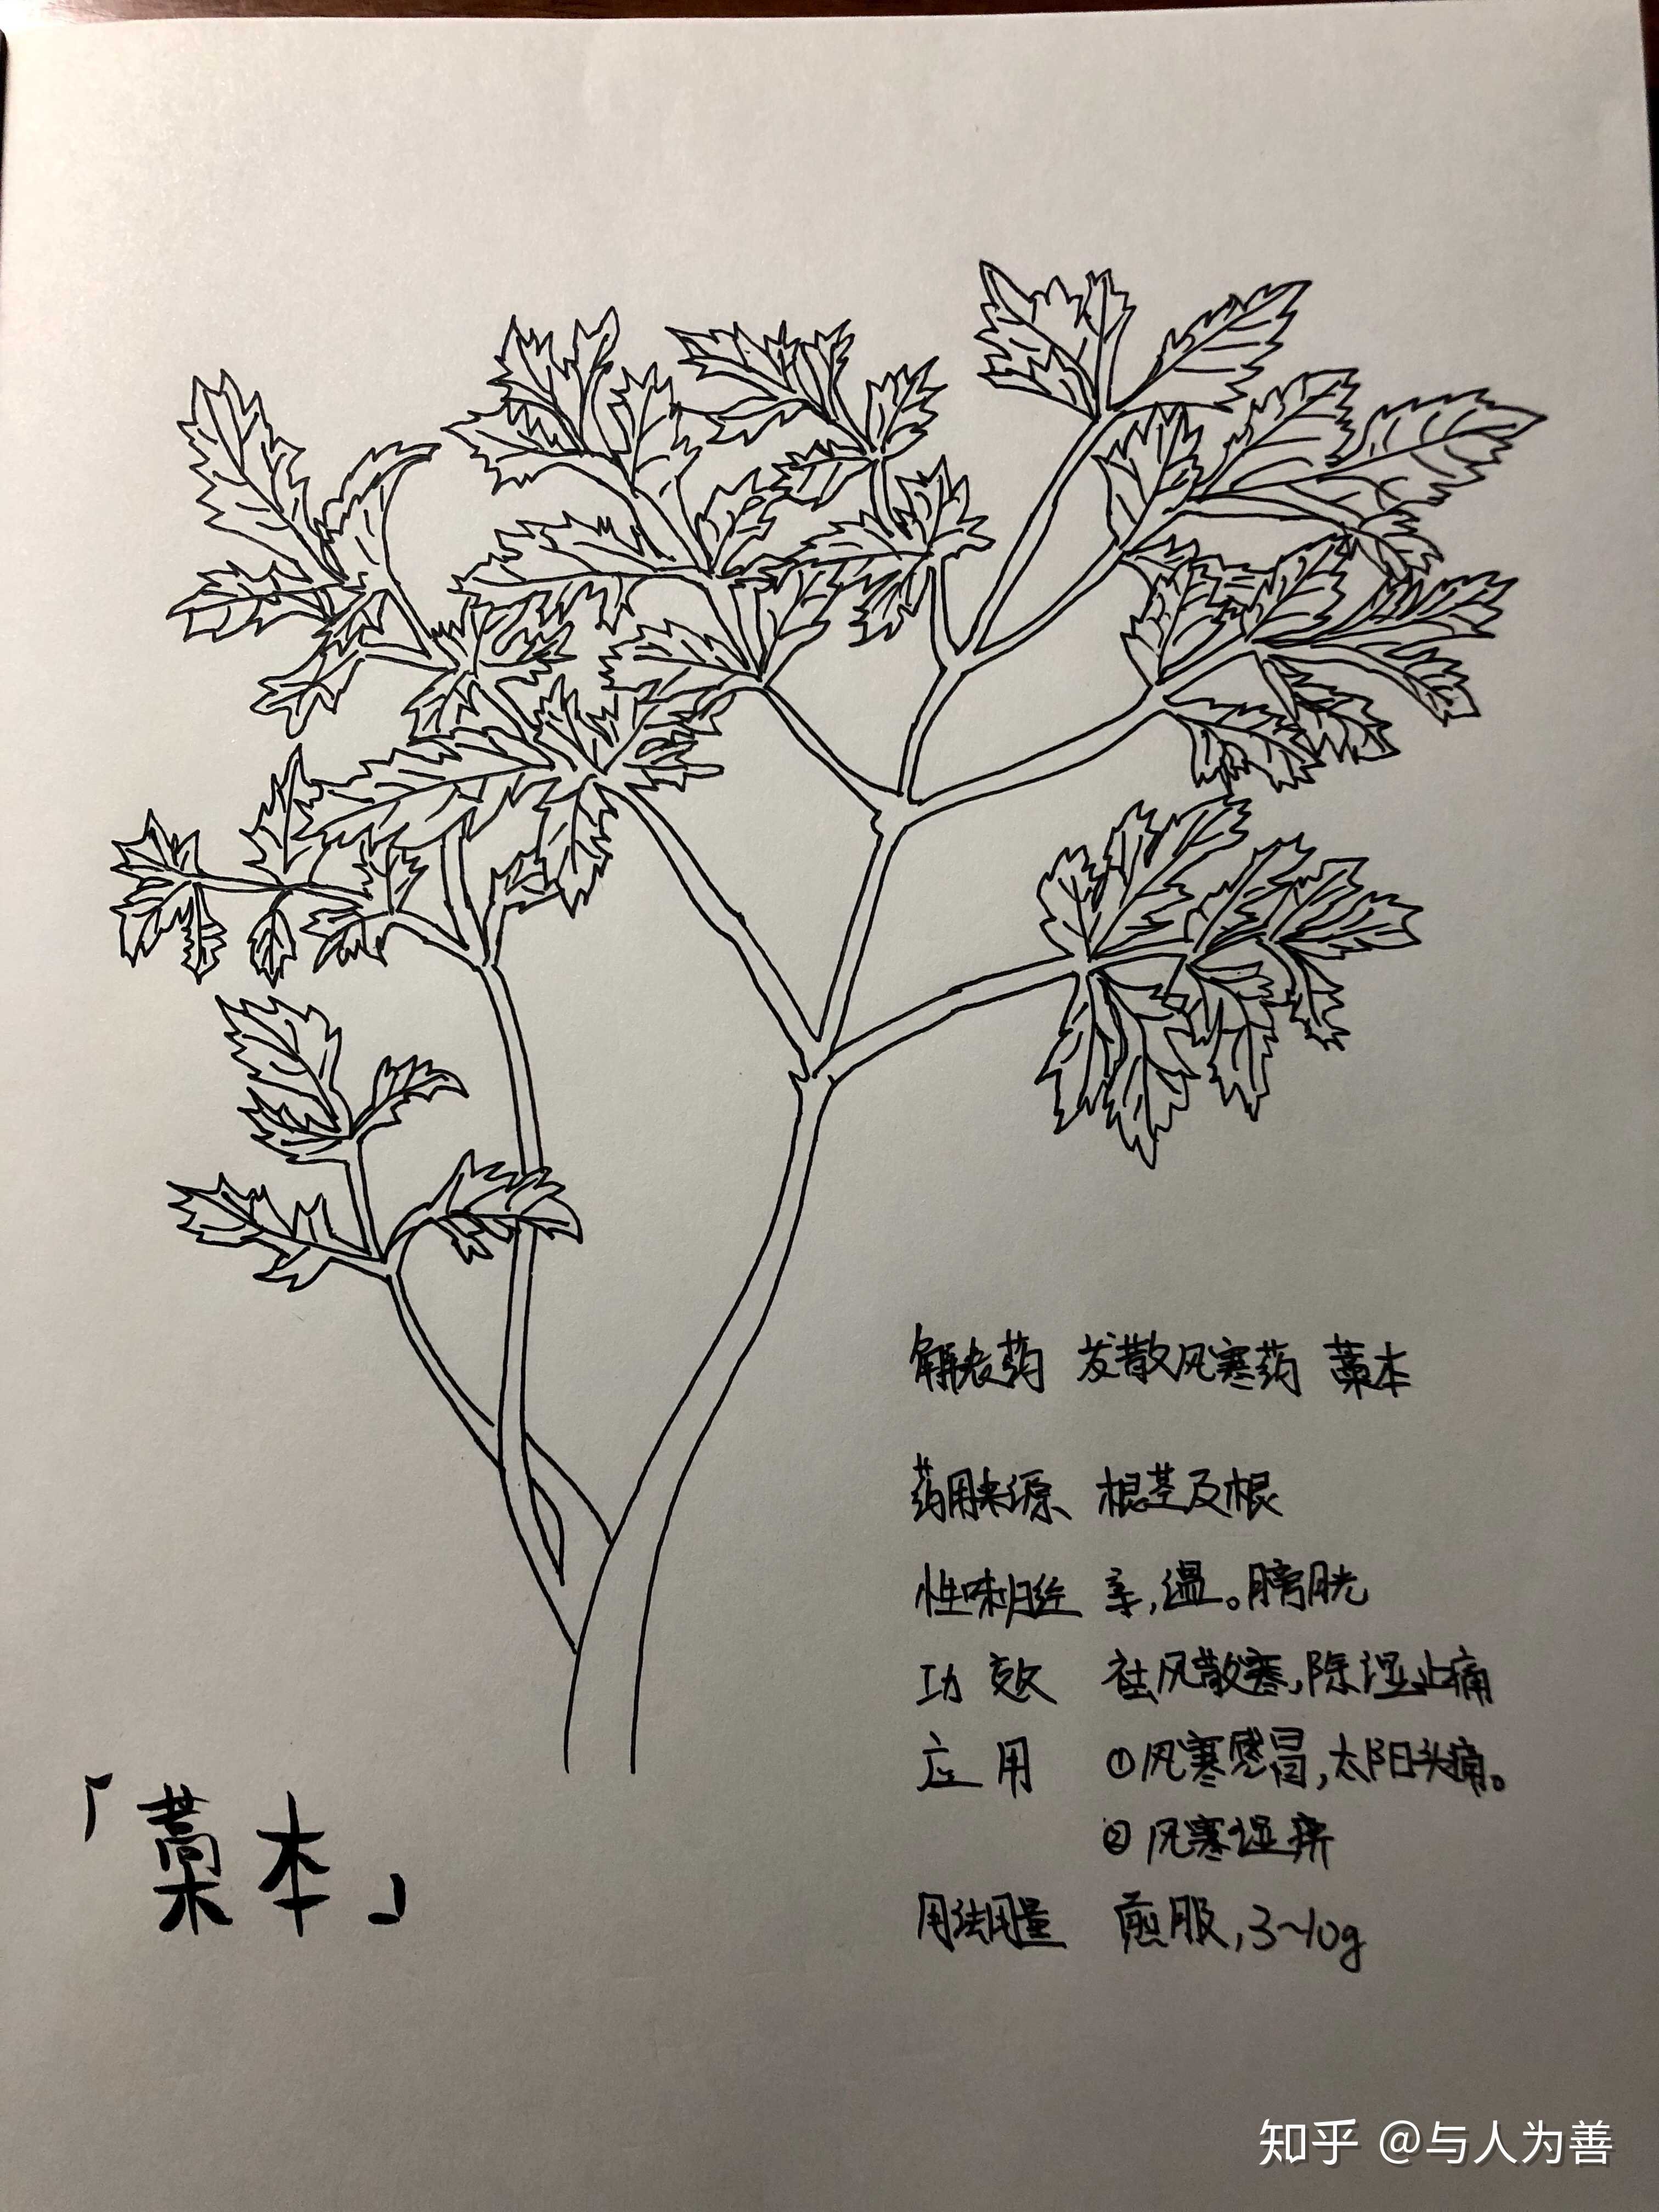 解表药 发散风寒药 藁本
药用来源 根茎及根
性味归经 辛,温。膀胱
功效 祛风散寒,除湿止痛
应用 ①风寒感冒,太阳头痛。
②风寒湿痹
用法用量 煎服,3~10g
「藁本」
知乎 @与人为善